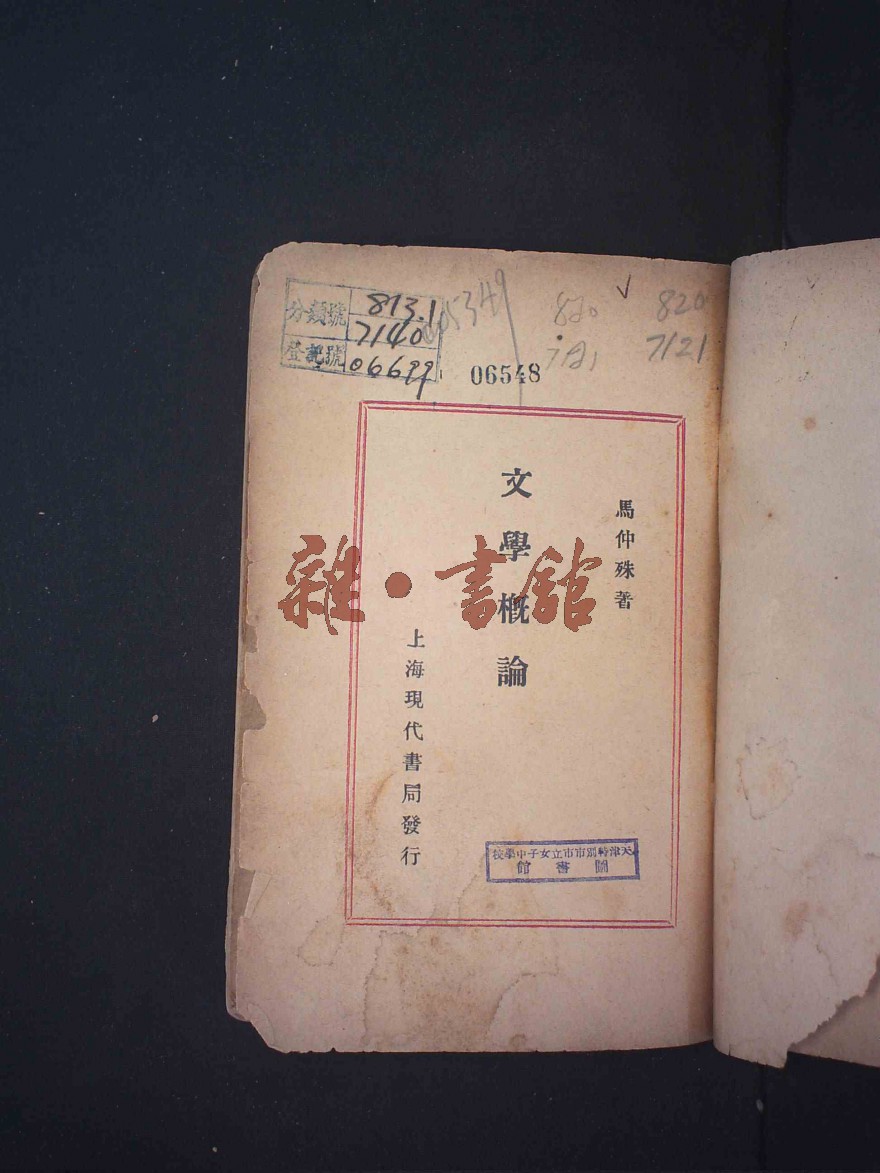 分類號 813.1
7140
登記號 06699
005349
820
820
7121
06548
馬仲殊著
文學概論
上海現代書局發行
雜·書館
天津特別市市立女子中學校
圖書館